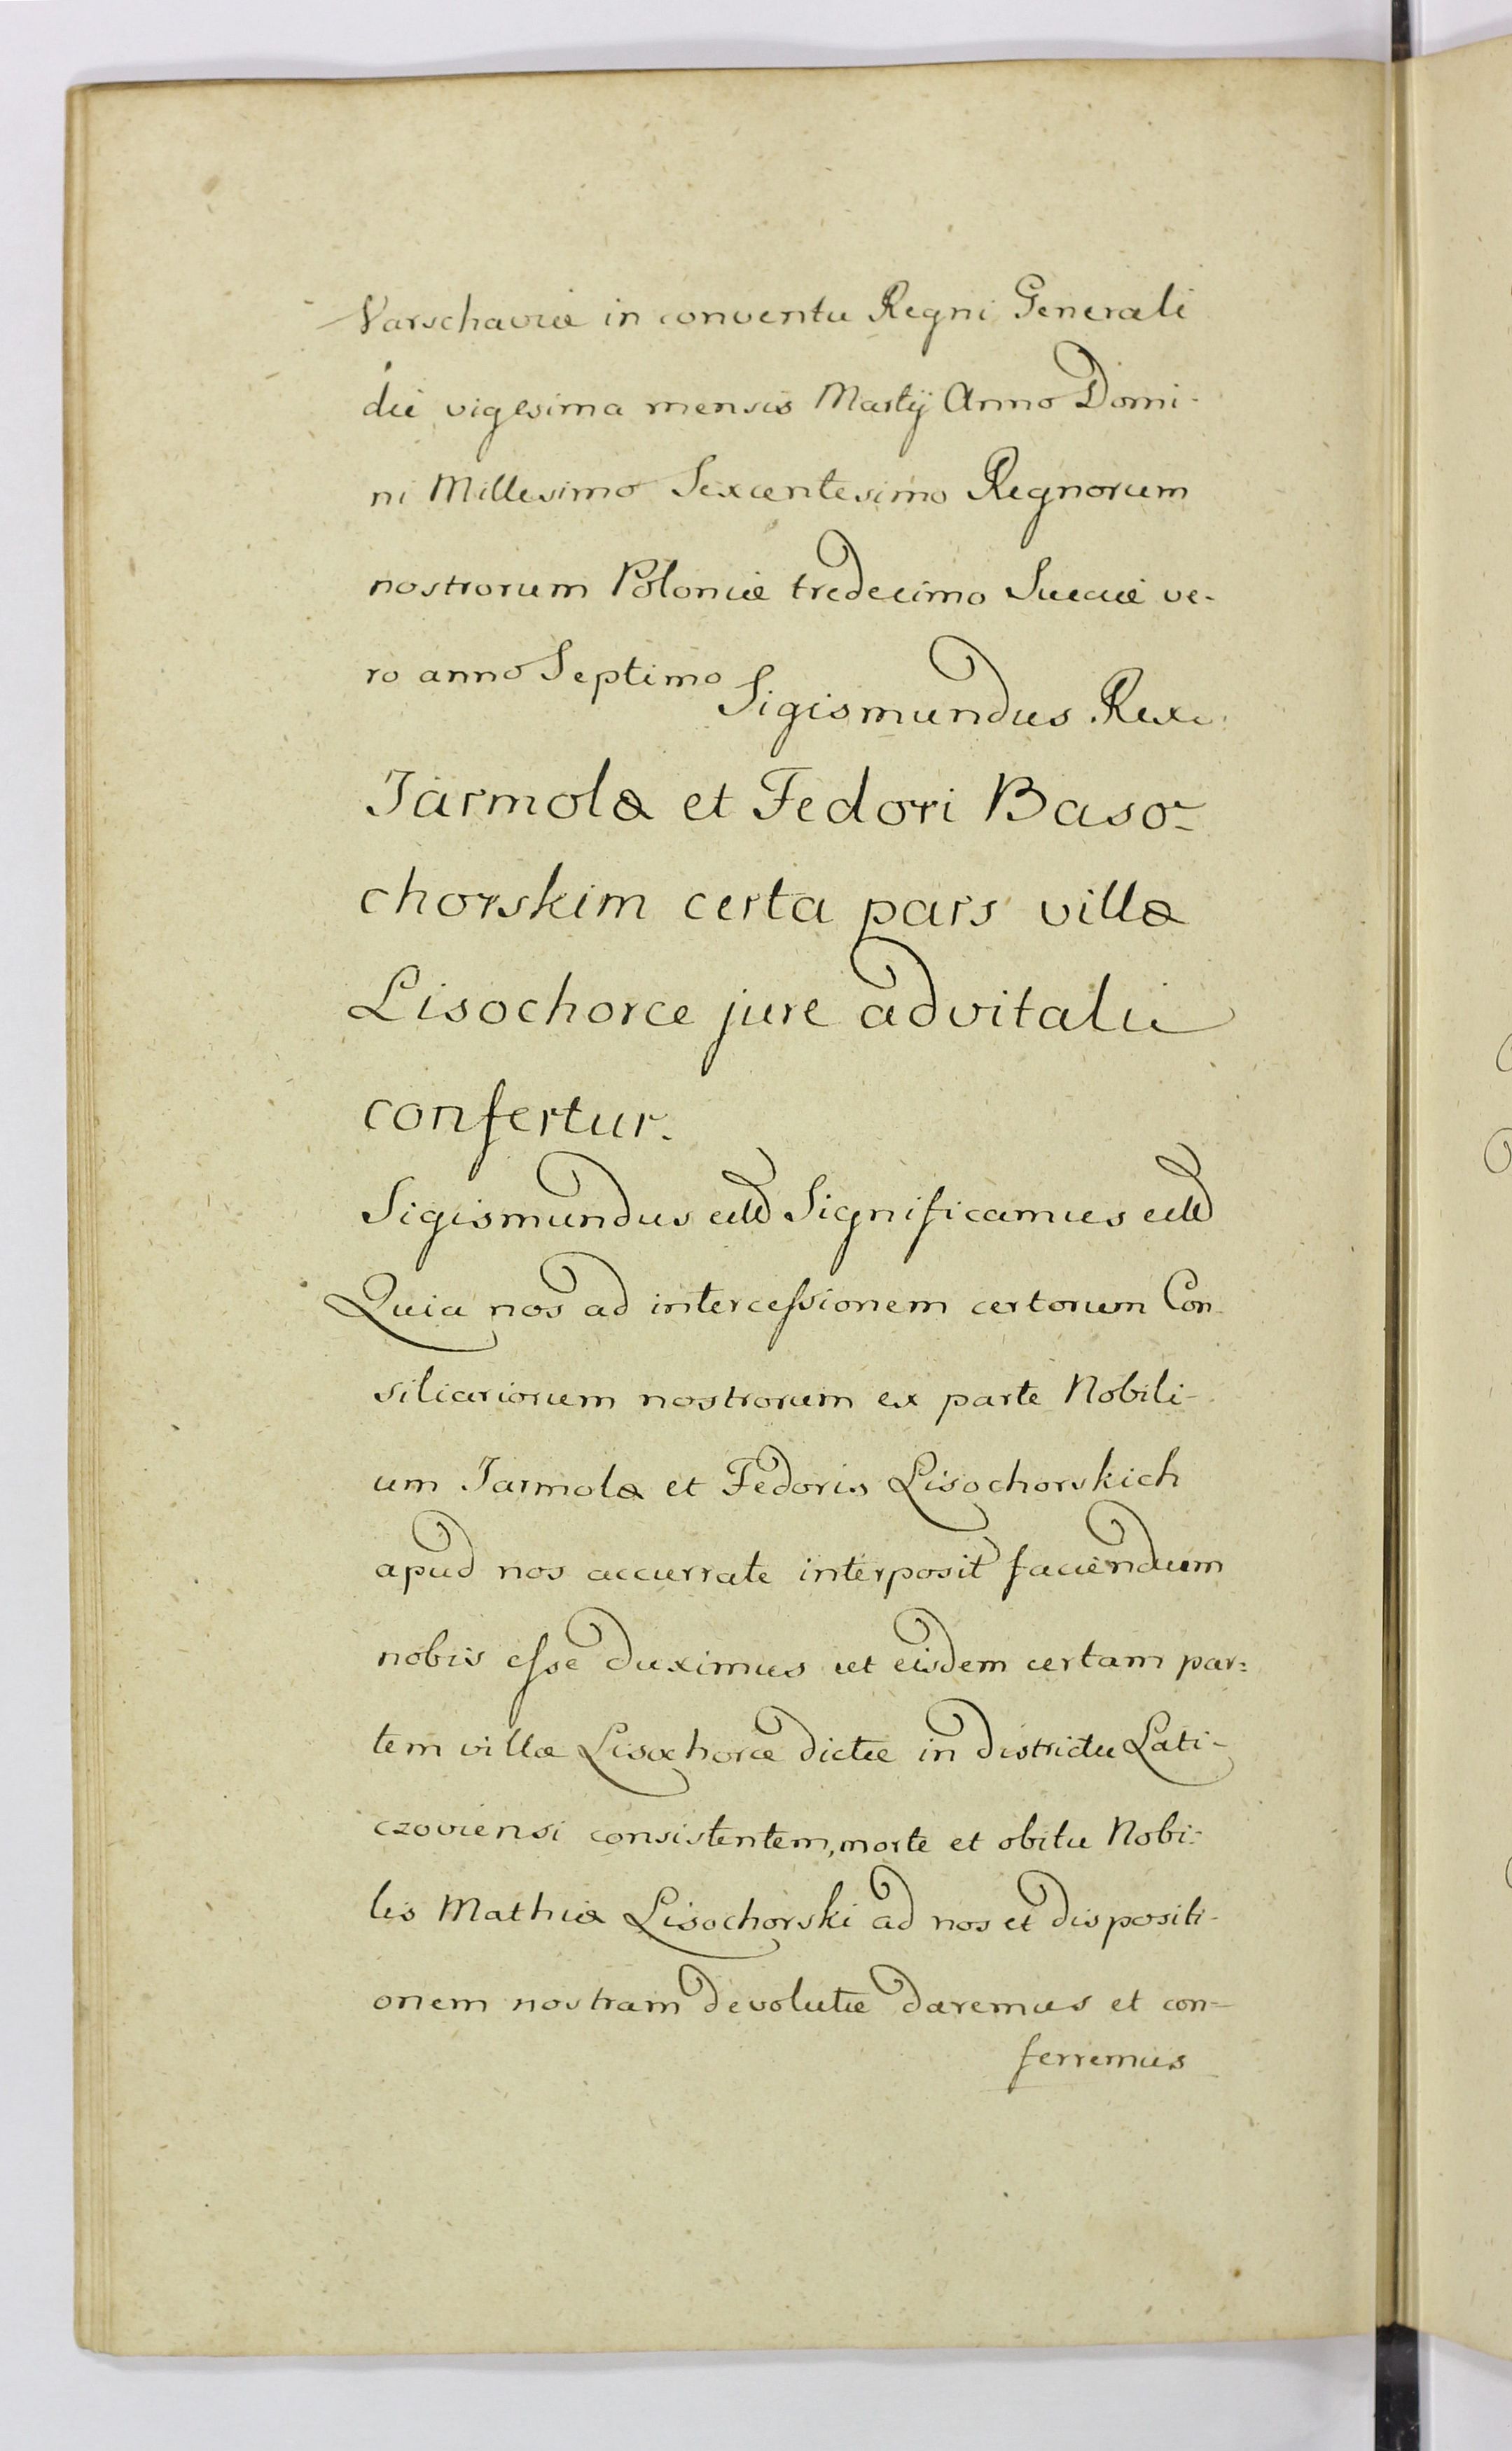 Varschaviæ in conventu Regni Generali
die vigesima mensis Martij Anno Domi-
ni Millesimo Sexcentesimo Regnorum
nostrorum Poloniæ tredecimo Sueciæ ve-
ro anno Septimo
Sigismundus Rex.
Jarmolæ et Fedori Baso-
chorskim certa pars villæ
Lisochorce jure advitali
confertur.
Sigismundus etc Significamus etc
Quia nos ad intercessionem certorum Con-
siliariorum nostrorum ex parte Nobili-
um Jarmolæ et Fedoris Lisochorskich
apud nos accurrate interposit faciendum
nobis esse duximus ut eisdem certam par=
tem villæ Lisochorce dictæ in districtu Lati-
czoviensi consistentem, morte et obitu Nobi=
lis Mathiæ Lisochorski ad nos et dispositi-
onem nostram devolutæ daremus et con=
ferremus